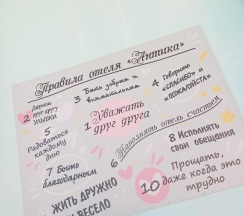 Правила отеля «Антика»
2 Дарить
друг другу
улыбки
3 Быть добрым и
внимательным
4 Говорить
«СПАСИБО» и
«ПОЖАЛУЙСТА»
1 Уважать
друг друга
5
Радоваться
каждому
дню
6
Наполнять отель счастьем
7 Быть
благодарным
8 Исполнять
свои обещания
ЖИТЬ ДРУЖНО
ВЕСЕЛО
10 Прощать,
даже когда это
трудно